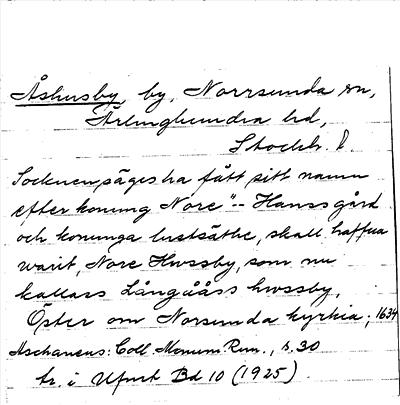 Åshusby, by, Norrsunda sn,
Ärlinghundra hd,
Stockh. l.
Socknen säges ha fått sitt namn
efter konung Nore "-- Hanss gård
och konunga lustsäthe, skall haffua
warit, Nore Hwssby, som nu
kallass Långååss hwssby,
Öster om Norsunda kyrkia; 1634
Aschaneus: Coll. Monum. Run., s. 30
tr. i Upurt Bd 10 (1925).